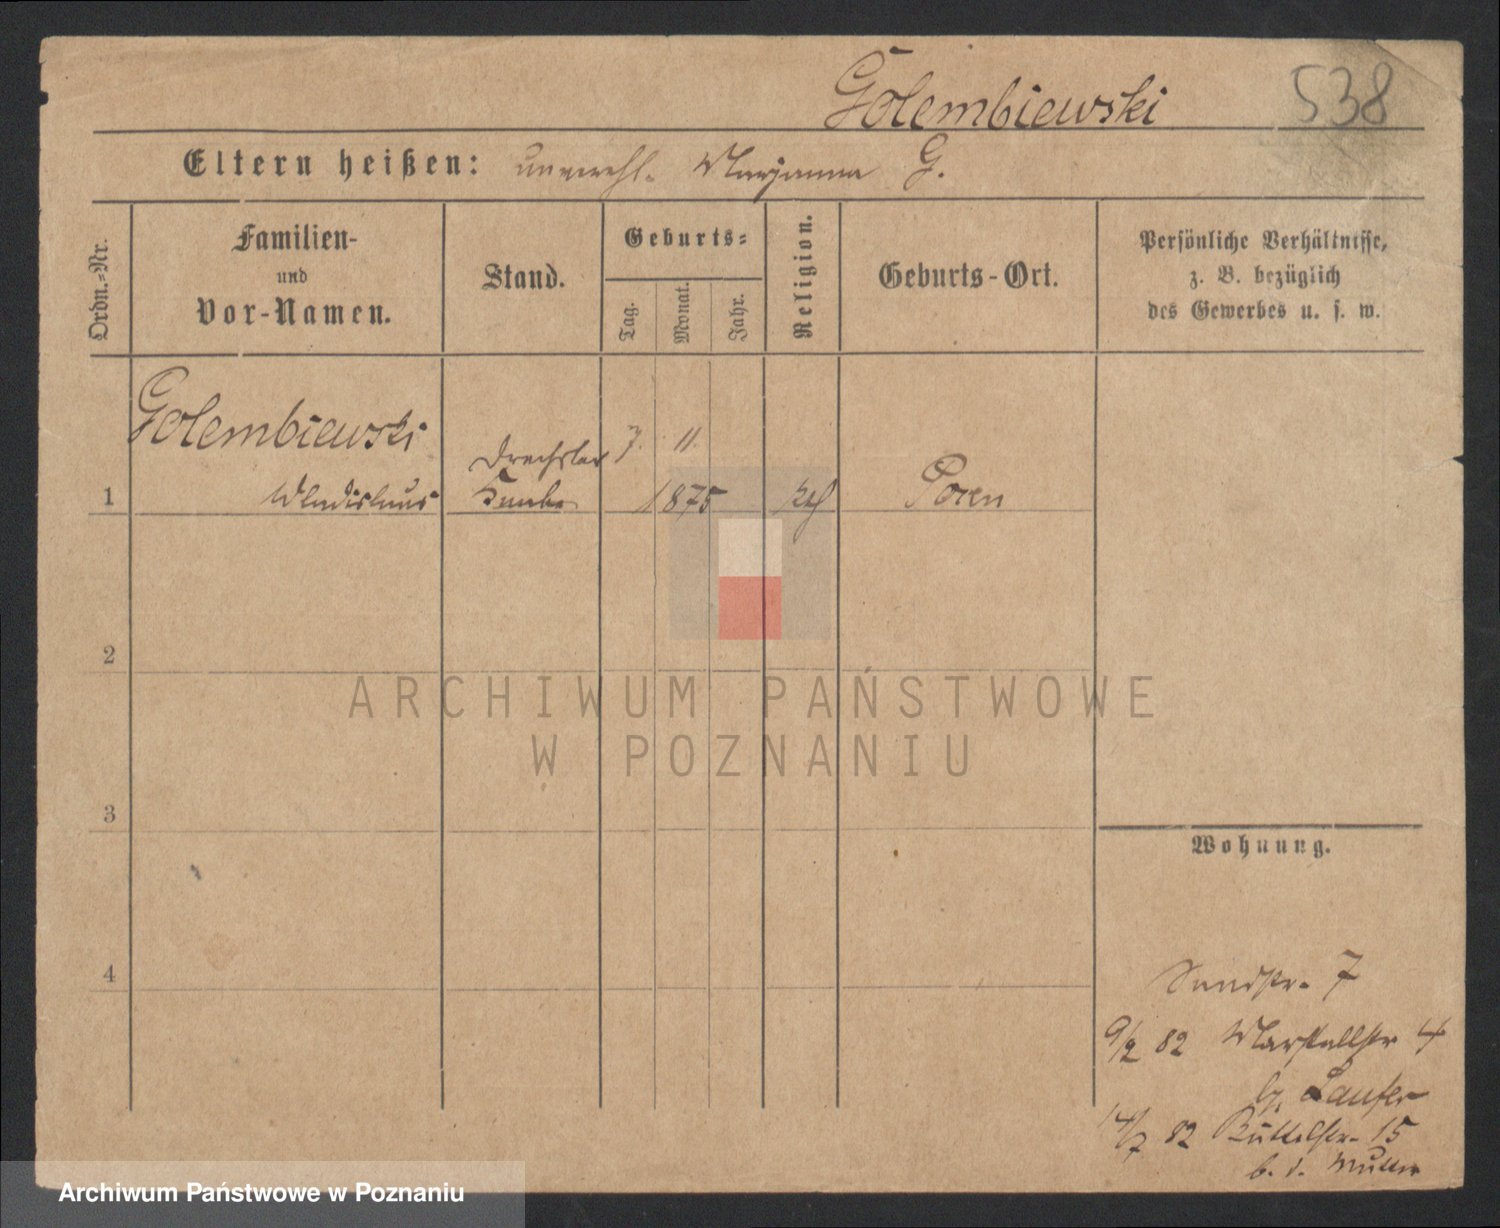 Golembiewski 538
Eltern heißen: unverehl. Marjanna G.
Ordn.-Nr.
Familien-
und
Vor-Namen.
Stand.
Geburts-
Tag.
Monat.
Jahr.
Religion.
Geburts-Ort.
Persönliche Verhältnisse,
z. B. bezüglich
des Gewerbes u. s. w.
Golembiewski
Drechsler 7. 11.
1 Wladislaus Knabe 1875 kth Posen
2
ARCHIWUM PAŃSTWOWE
W POZNANIU
3
Wohnung.
4
Sandstr. 7
9/2 82 Marstallstr 4
b. Laufer
14/7 82 Büttelstr. 15
b. d. Mutter
Archiwum Państwowe w Poznaniu